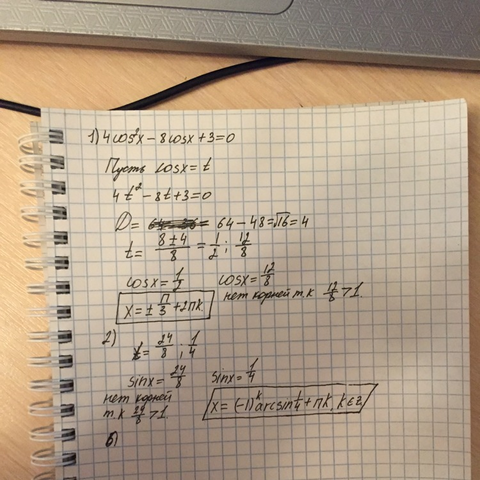 1) 4cos²x − 8cosx + 3 = 0
Пусть cosx = t
4t² − 8t + 3 = 0
D = 64 − 48 = √16 = 4
t = (8 ± 4)/8 = 1/2 ; 12/8
cosx = 1/2 cosx = 12/8
x = ± π/3 + 2πk нет корней т.к 12/8 > 1
2)
t = 24/8 ; 1/4
sinx = 24/8 sinx = 1/4
нет корней
т.к 24/8 > 1. x = (−1)ᵏ arcsin 1/4 + πk, k∈z